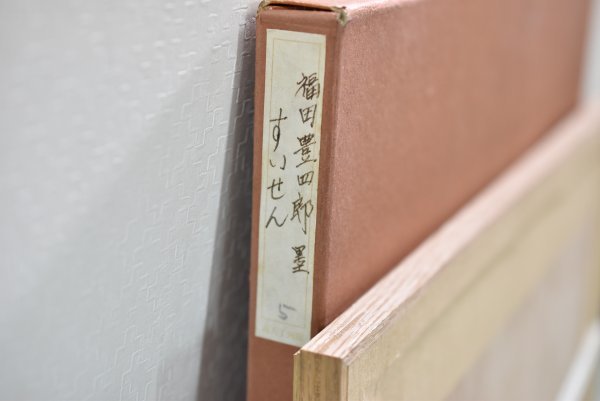 福田豊四郎 墨
すいせん
5